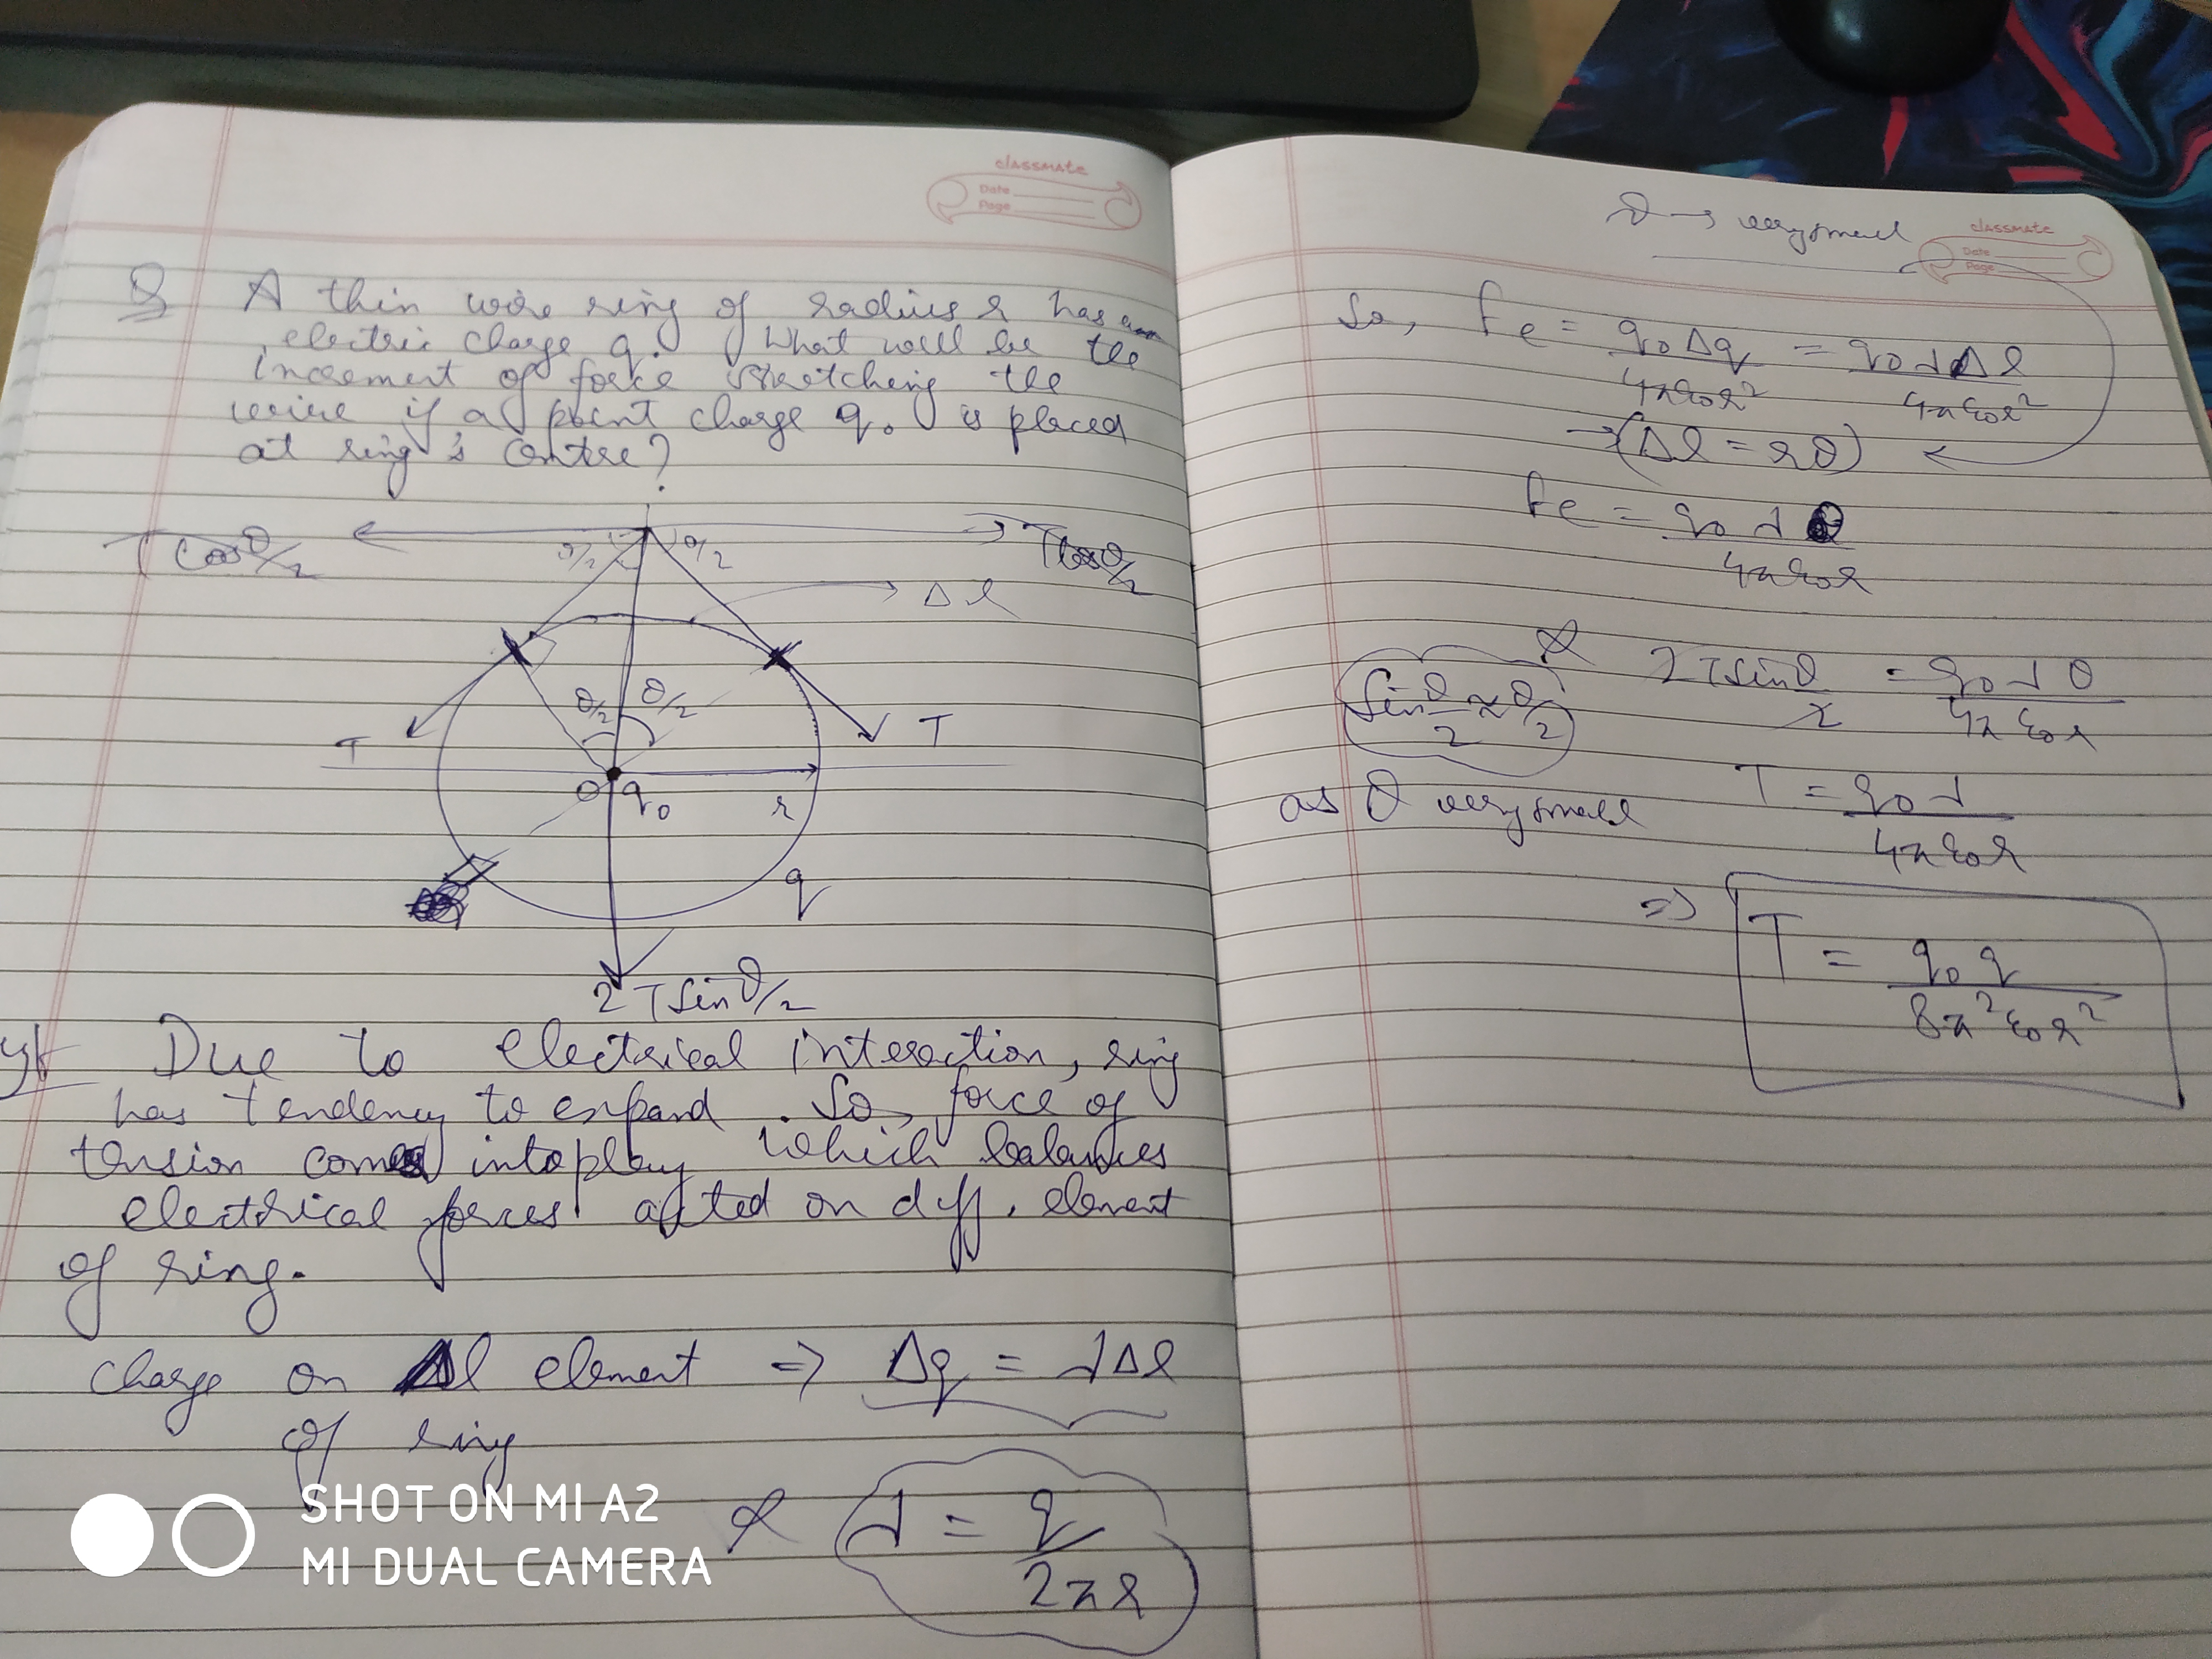 classmate
Date
Page
Q A thin wire ring of radius r has an
electric charge q. What will be the
increment of force stretching the
wire if a point charge q₀ is placed
at ring's centre?
T cosθ/2
Tcosθ/2
θ/2 θ/2
Δl
θ/2 θ/2
T
T
O q₀
r
q
2Tsinθ/2
Due to electrical interaction, ring
has tendency to expand. So, force of
tension comes into play which balances
electrical forces acted on diff. element
of ring.
charge on Δl element => Δq = λΔl
of ring
& λ = q/2πr
SHOT ON MI A2
MI DUAL CAMERA
classmate
Date
Page
θ → very small
So, Fe = q₀Δq/4πε₀r² = q₀λΔl/4πε₀r²
→(Δl = rθ)
Fe = q₀λθ/4πε₀r
& 2Tsinθ/2 = q₀λθ/4πε₀r
sinθ/2 ≈ θ/2
as θ very small
T = q₀λ/4πε₀r
=> T = q₀q/8π²ε₀r²